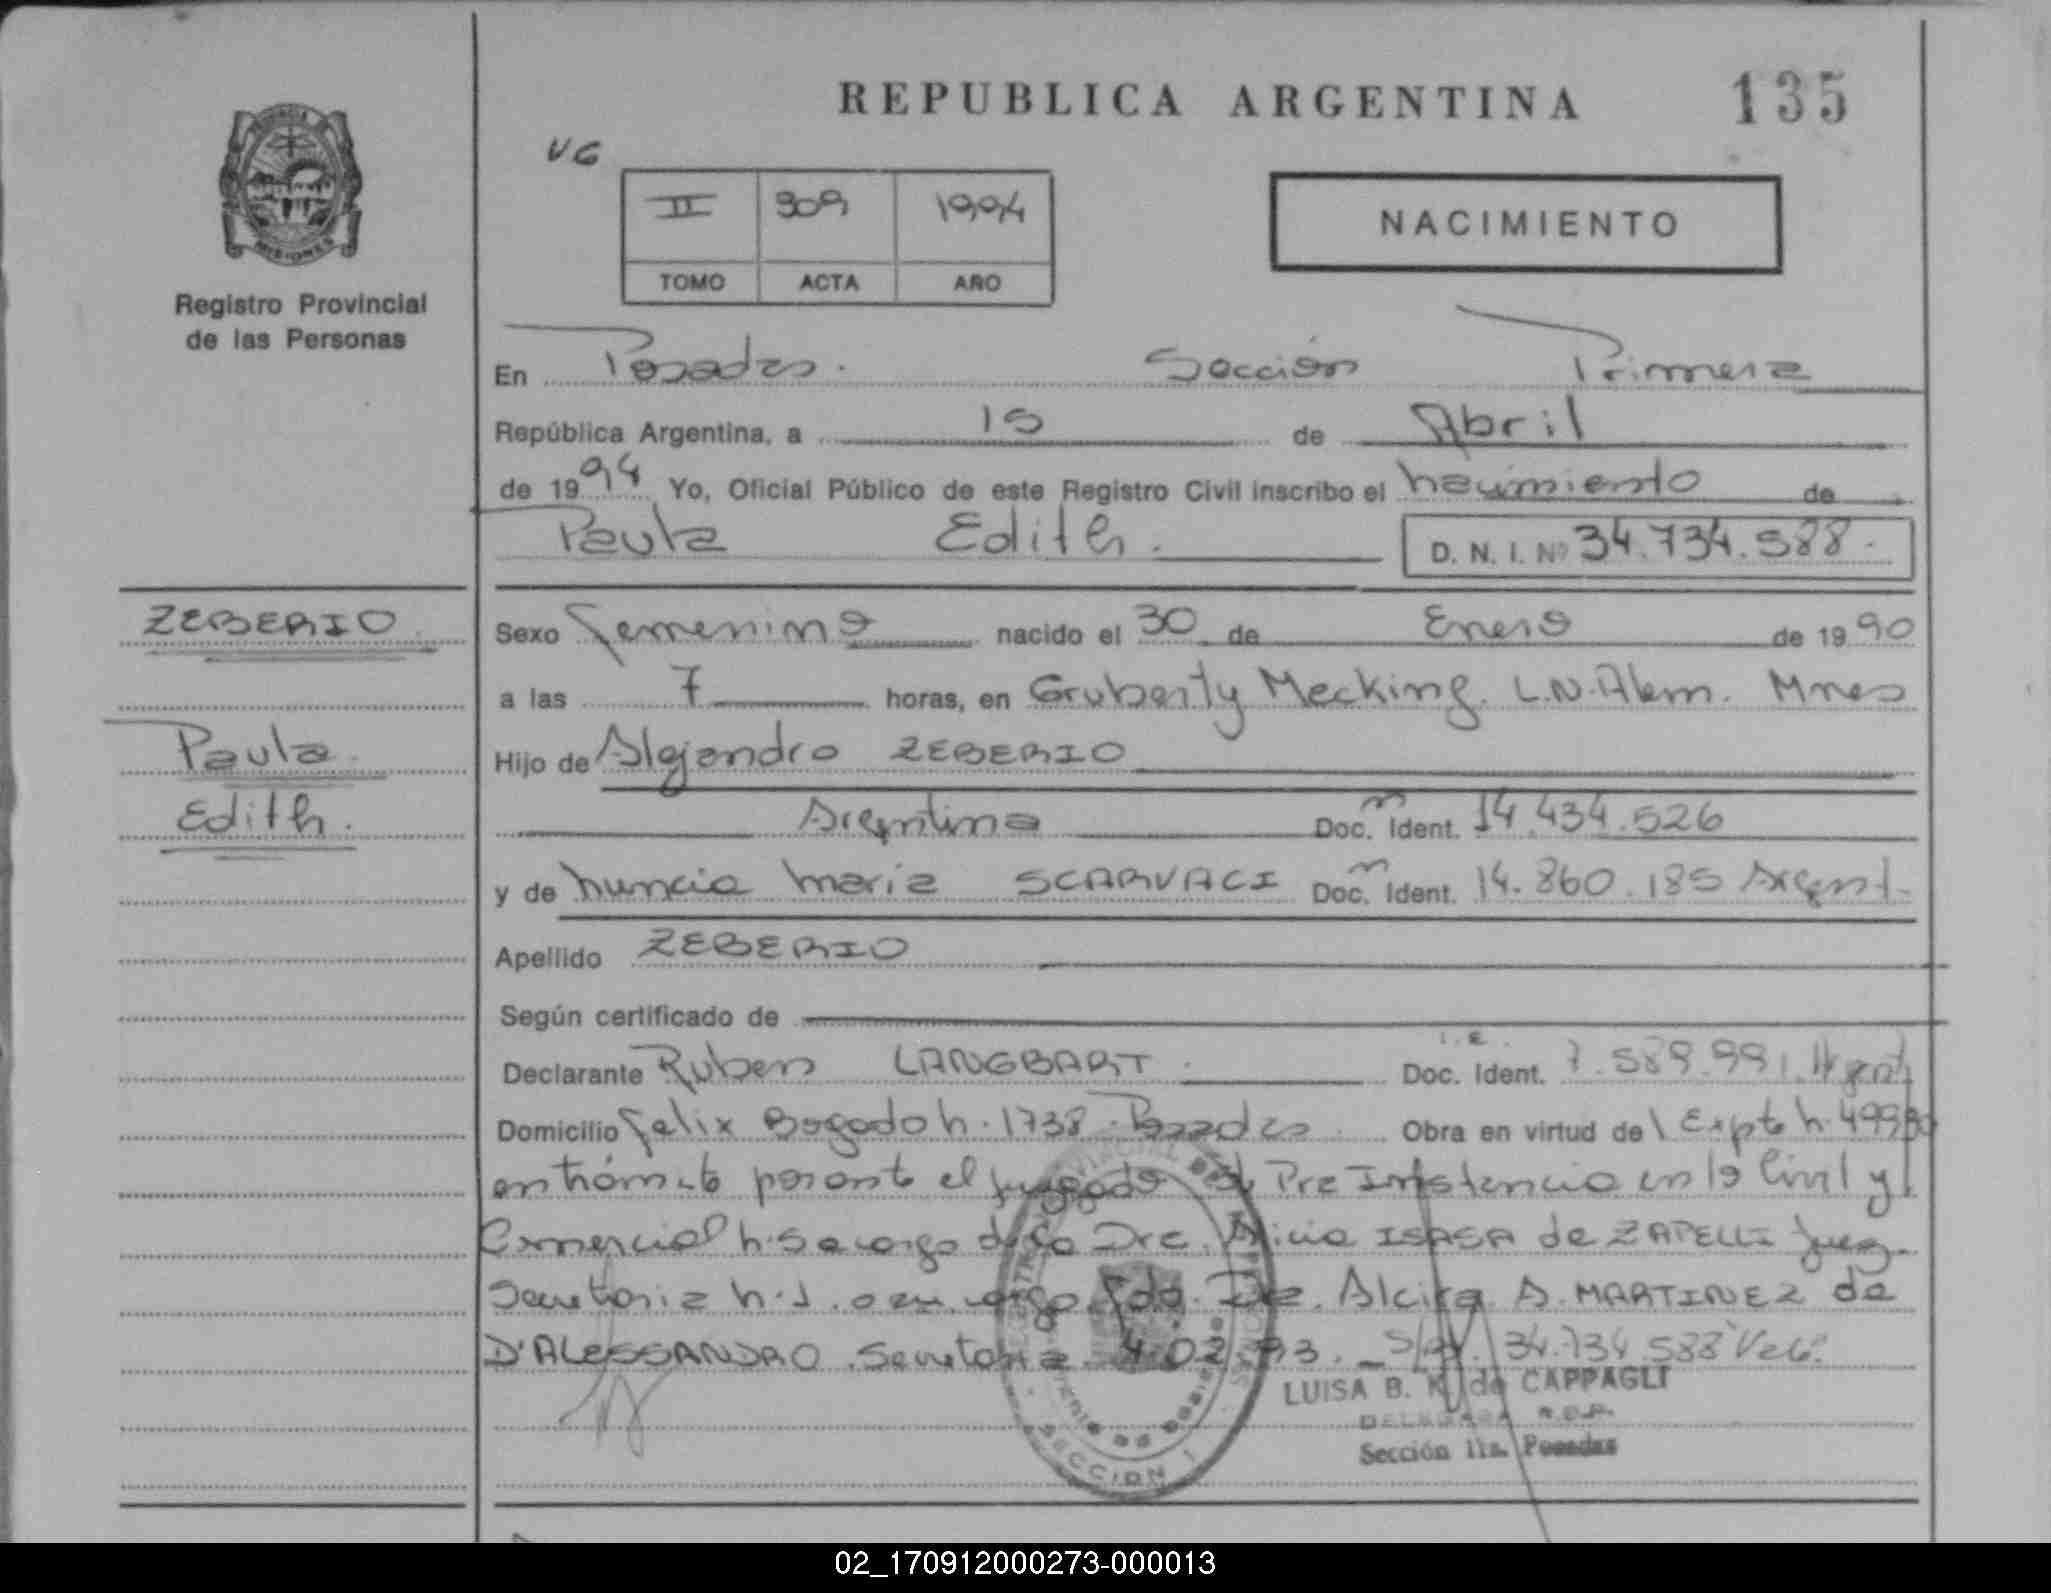 REPUBLICA ARGENTINA 135
VG
II 309 1994
TOMO ACTA AÑO
NACIMIENTO
Registro Provincial
de las Personas
En Posadas. Sección Primera
República Argentina, a 15 de Abril
de 1994 Yo, Oficial Público de este Registro Civil inscribo el nacimiento de
Paula Edith. D. N. I. Nº 34.734.588.
ZEBERIO
Paula
Edith.
Sexo femenino nacido el 30 de Enero de 1990
a las 7 horas, en Gruber y Mecking. L.N.Alem. Mnes
Hijo de Alejandro ZEBERIO
Argentino Doc. Ident. 14.434.526
y de Nuncia Maria SCARVACI Doc. Ident. 14.860.185 Argent.
Apellido ZEBERIO
Según certificado de
Declarante Ruben LANGBART. Doc. Ident. 7.589.991. Argent
Domicilio Felix Bogado N. 1738 Posadas Obra en virtud de Expte N. 499
en trámite por ante el Juzgado de Pra Instancia en lo Civil y
Comercial N. 5 a cargo de la Dra. Alicia ISASA de ZAPELLI Juez.
Secretaria N. 1. a cargo de la Dra. Alcira A. MARTINEZ de
D'ALESSANDRO. Secretaria 4.02.93. 34.734.588 Vale.
LUISA B. K. de CAPPAGLI
DELEGADA R.C.P.
Sección 1ra. Posadas
SECCION 1
02_170912000273-000013